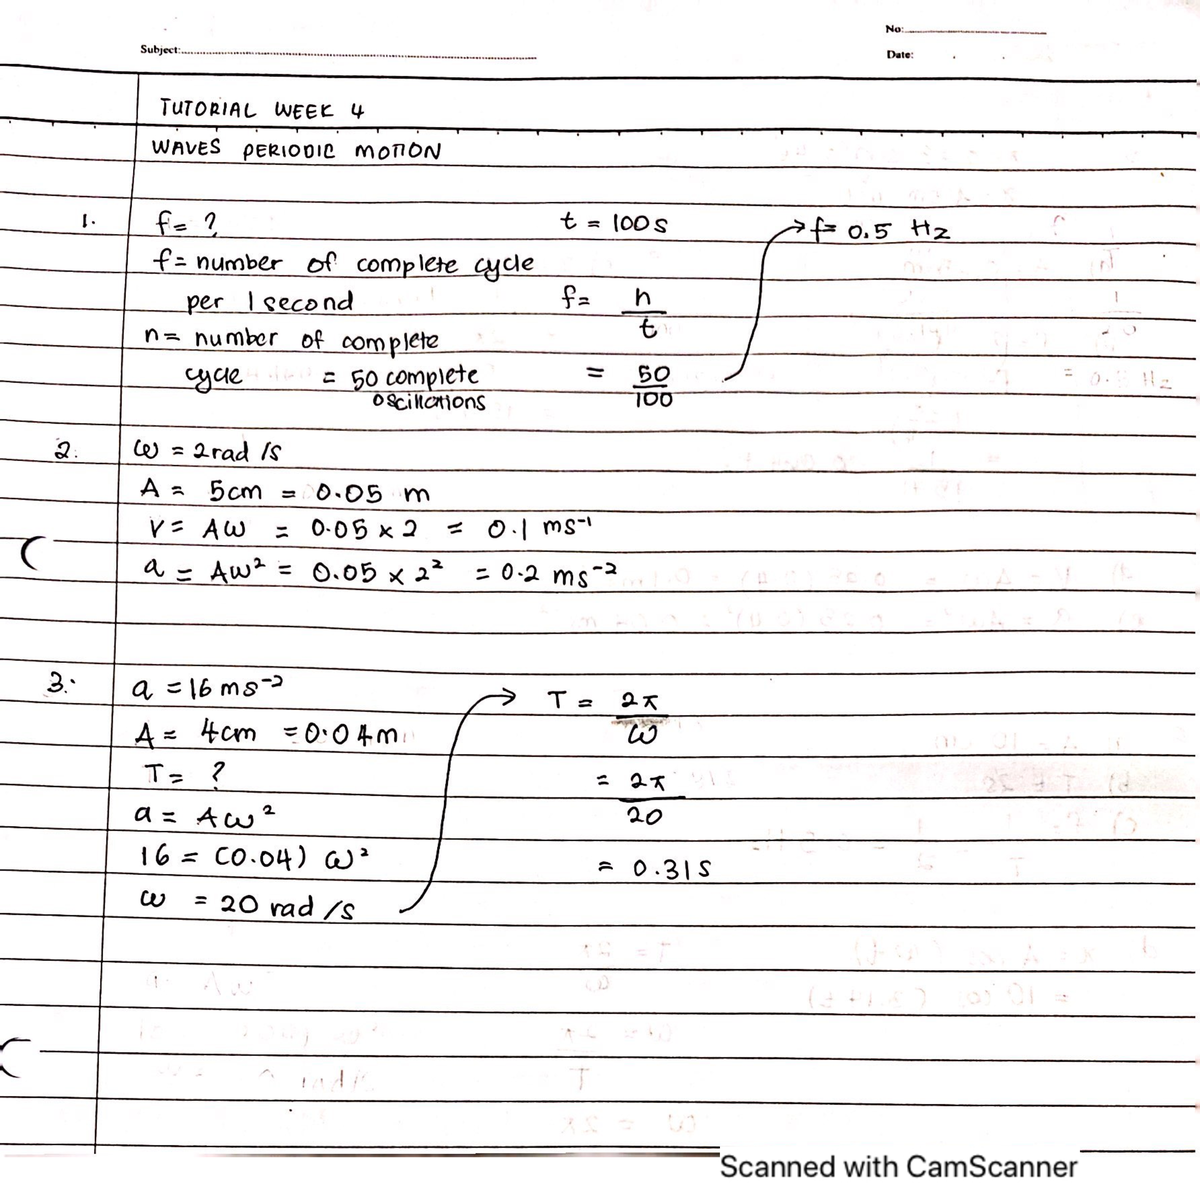 No:
Subject:
Date:
TUTORIAL WEEK 4
WAVES PERIODIC MOTION
1. f = ?
f = number of complete cycle
per 1 second
n = number of complete
cycle = 50 complete
oscillations
t = 100s
f = n
t
= 50
100
→ f = 0.5 Hz
2. ω = 2 rad /s
A = 5cm = 0.05 m
V = Aω = 0.05 × 2 = 0.1 ms⁻¹
a = Aω² = 0.05 × 2² = 0.2 ms⁻²
3. a = 16 ms⁻²
A = 4cm = 0.04m
T = ?
a = Aω²
16 = (0.04) ω²
ω = 20 rad /s
→ T = 2π
ω
= 2π
20
= 0.31s
Scanned with CamScanner